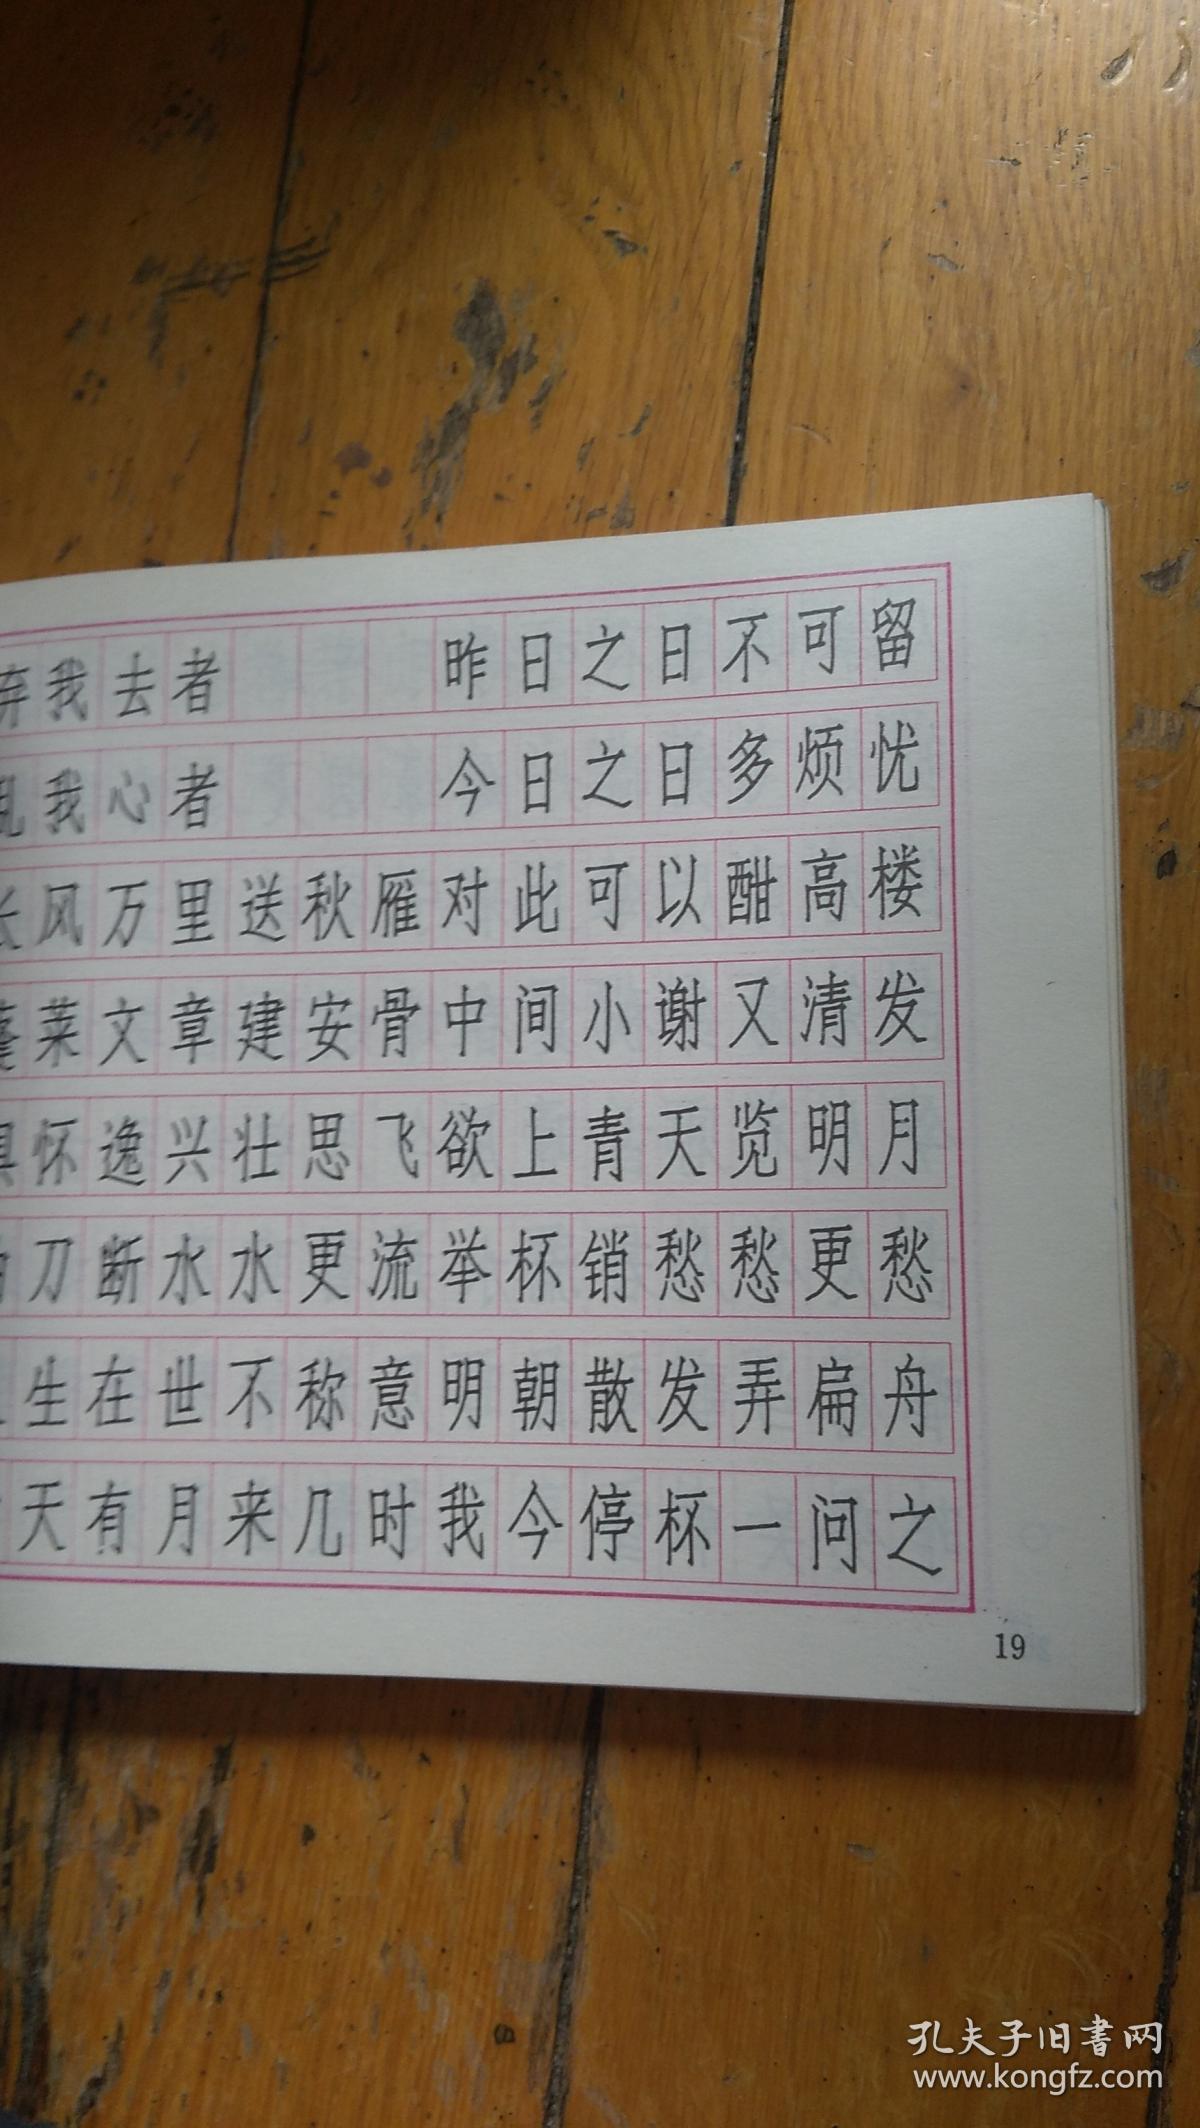 弃我去者 昨日之日不可留
乱我心者 今日之日多烦忧
长风万里送秋雁对此可以酣高楼
蓬莱文章建安骨中间小谢又清发
俱怀逸兴壮思飞欲上青天览明月
刀断水水更流举杯销愁愁更愁
生在世不称意明朝散发弄扁舟
天有月来几时我今停杯一问之
19
孔夫子旧书网
www.kongfz.com